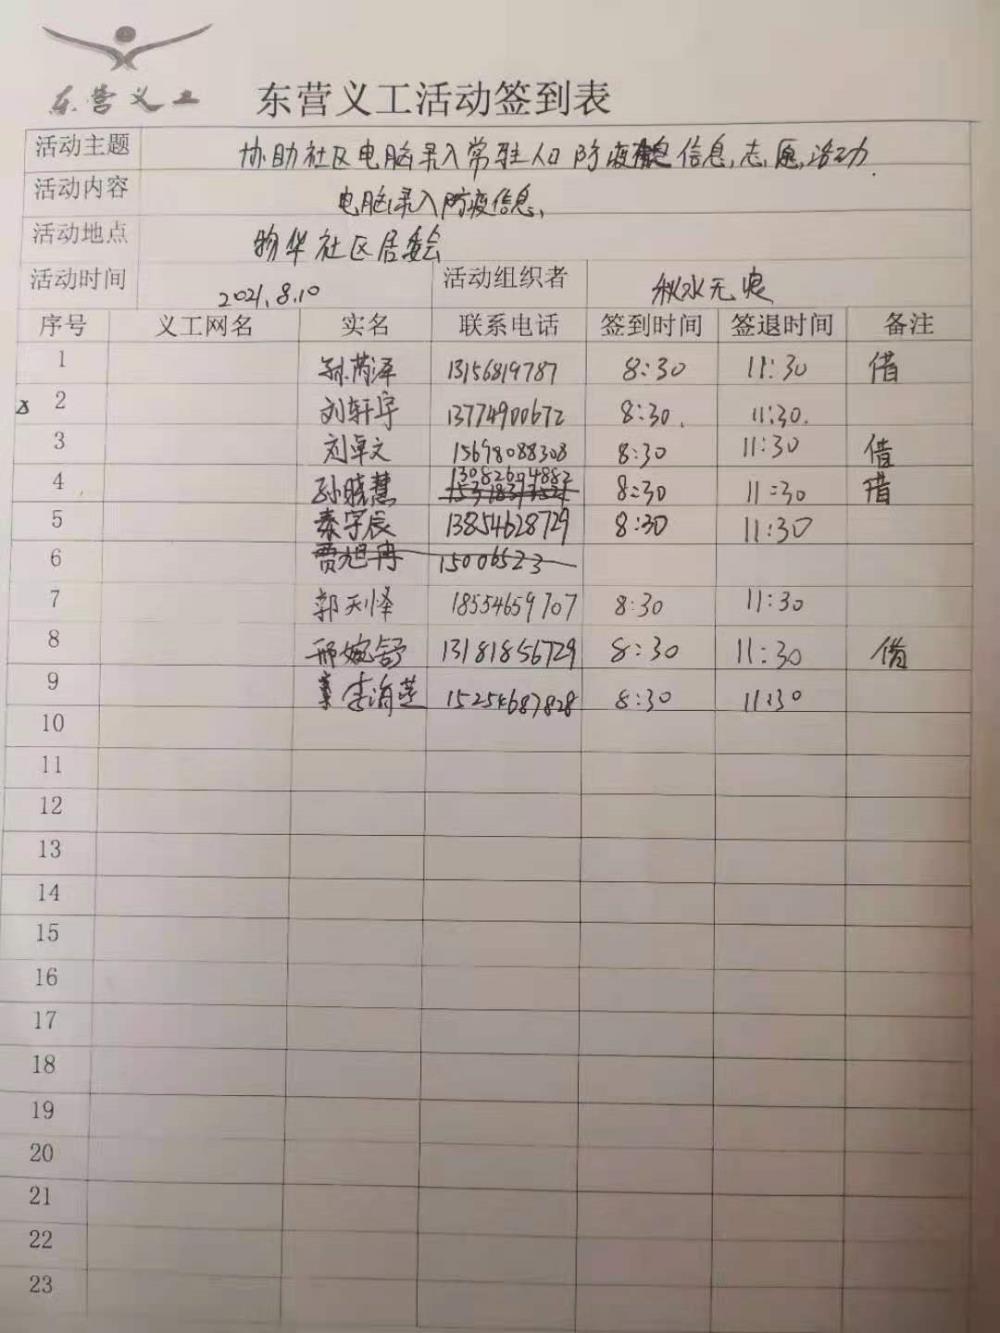 东营义工
东营义工活动签到表
活动主题 协助社区电脑录入常驻人口防疫信息志愿活动.
活动内容 电脑录入防疫信息、
活动地点 物华社区居委会
活动时间 2021.8.10 活动组织者 秋水无痕
序号 义工网名 实名 联系电话 签到时间 签退时间 备注
1 13156819787 8:30 11:30 借
2 刘轩宇 13774900672 8:30. 11:30.
3 刘卓文 15698088308 8:30 11:30 借
4 孙晓慧 13082604882 8:30 11:30 借
5 秦宇辰 13854628729 8:30 11:30
6 贾旭冉 15006523
7 郭天怿 18554659707 8:30 11:30
8 邢婉舒 13181856729 8:30 11:30 借
9 15254687828 8:30 11:30
10
11
12
13
14
15
16
17
18
19
20
21
22
23